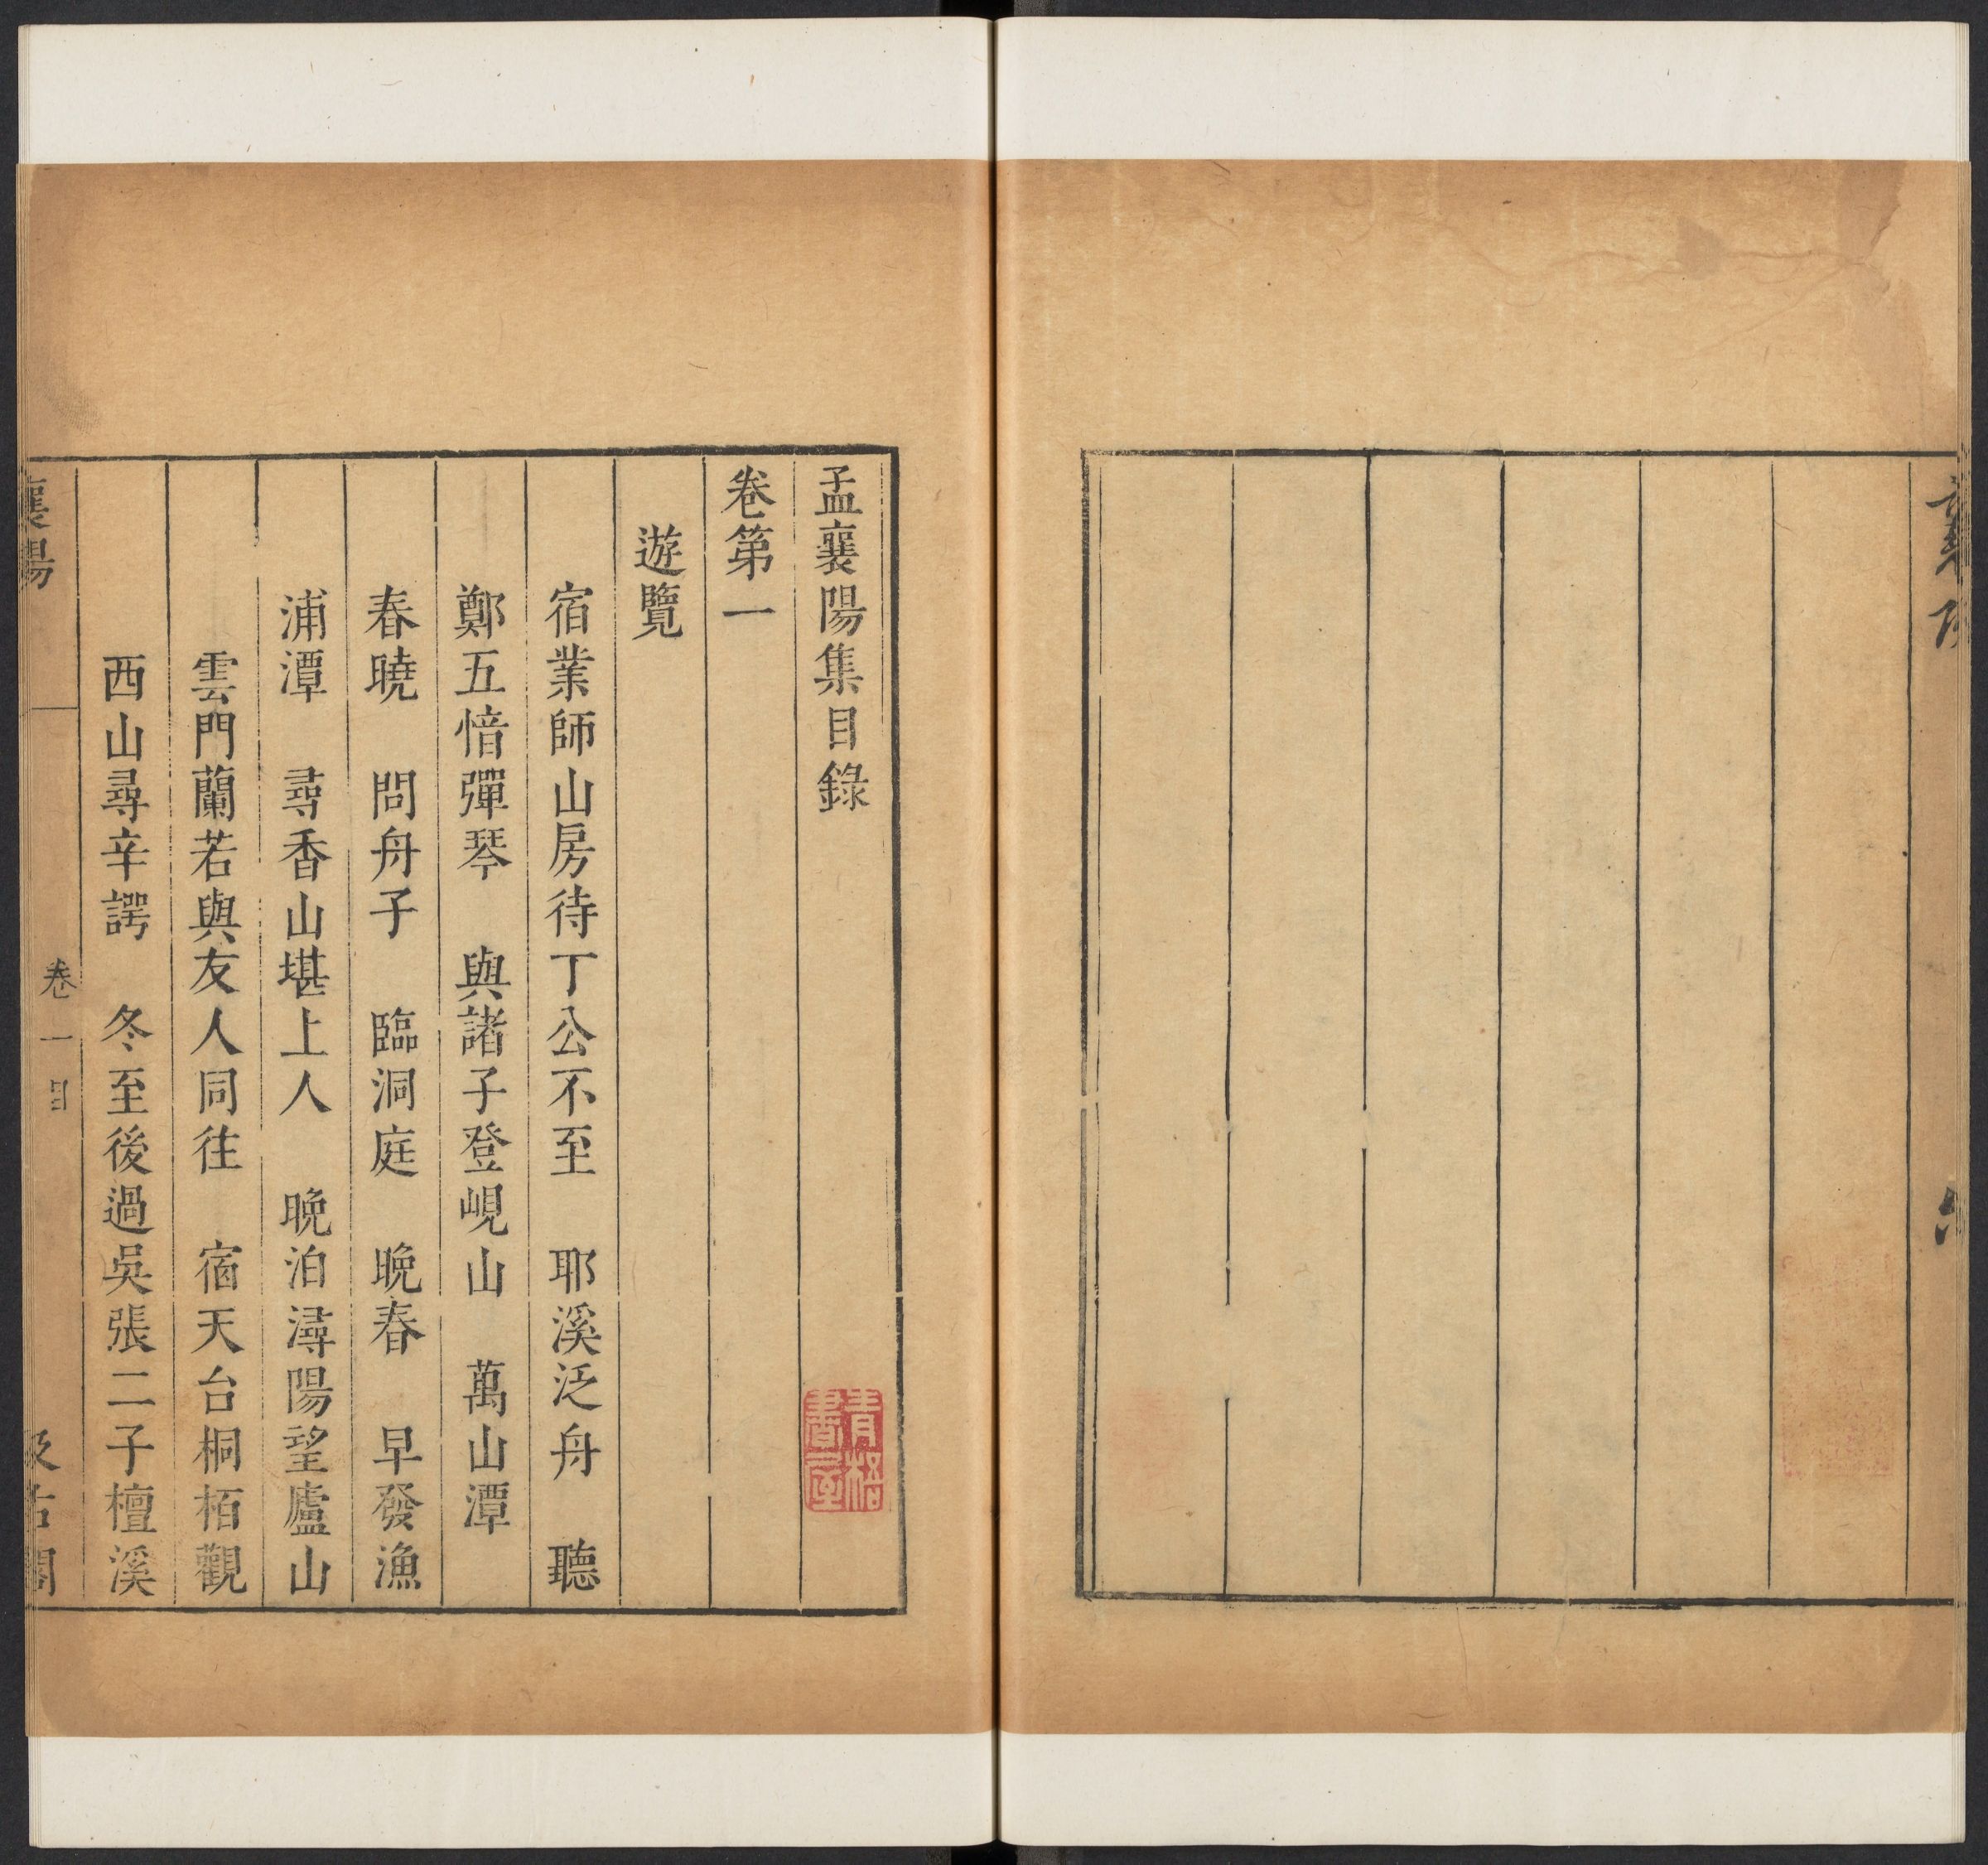 孟襄陽集目錄
卷第一
遊覽
宿業師山房待丁公不至　耶溪泛舟　聽
鄭五愔彈琴　與諸子登峴山　萬山潭
春曉　問舟子　臨洞庭　晚春　早發漁
浦潭　尋香山堪上人　晚泊潯陽望廬山
雲門蘭若與友人同往　宿天台桐栢觀
西山尋辛諤　冬至後過吳張二子檀溪
襄陽　卷一目
青梧書屋